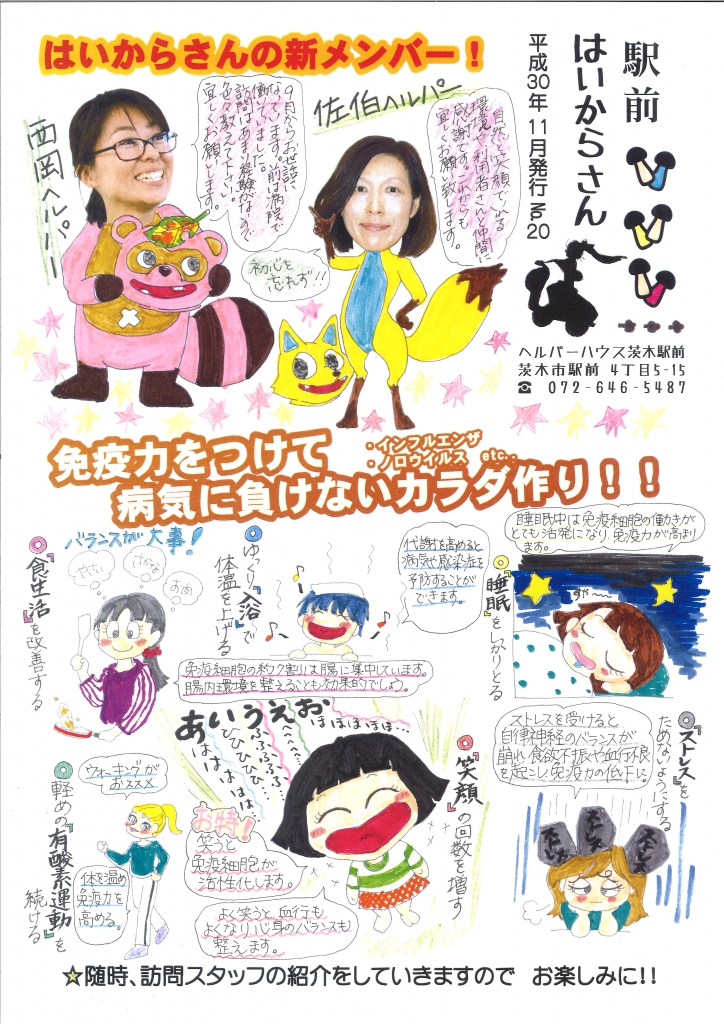 はいからさんの新メンバー！
駅前
はいからさん
平成30年 11月発行 No.20
ヘルパーハウス茨木駅前
茨木市駅前 4丁目5-15
☎ 072-646-5487
西岡ヘルパー
９月からお世話に
なっています。前は病院で
働いていました。
訪問はあまり経験がないので
色々教えて下さい。
宜しくお願いします。
佐伯ヘルパー
自然と笑顔でいれる
環境や利用者さんと仲間に
感謝です。これからも
宜しくお願い致します。
初心を
忘れず!!
免疫力をつけて
・インフルエンザ
・ノロウイルス etc..
病気に負けないカラダ作り！！
バランスが大事！
『食生活』を改善する
やさい
さかな
お肉
ゆっくり『入浴』で
体温を上げる
代謝を高めると
病気や感染症を
予防することが
できます。
免疫細胞の約7割は腸に集中しています。
腸内環境を整えることも効果的でしょう。
睡眠中は免疫細胞の働きが
とても活発になり、免疫力が高まり
ます。
『睡眠』をしっかりとる
すや〜
『ストレス』を
ためないようにする
ストレスを受けると
自律神経のバランスが
崩れ食欲不振や血行不良
を起こし免疫力の低下に
ストレス
ストレス
ストレス
あいうえお
ははははは…
ひひひひひ…
ふふふふふ…
へへへへへ…
ほほほほほ…
『笑顔』の回数を増す
お得！
笑うと
免疫細胞が
活性化します。
よく笑うと、血行も
よくなり、心身のバランスも
整えます。
ウォーキングが
おススメ
軽めの『有酸素運動』を
続ける
体を温め
免疫力を
高める。
☆随時、訪問スタッフの紹介をしていきますので お楽しみに!!